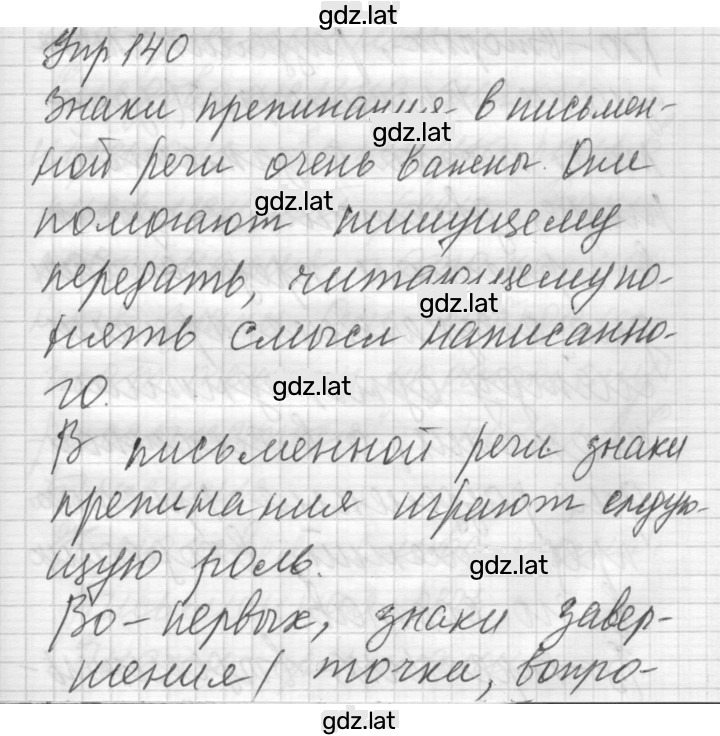 gdz.lat
Упр 140
Знаки препинания в письмен-
gdz.lat
ной речи очень важены. Они
gdz.lat
помогают пишущему
передать, читающему по-
gdz.lat
нять смысл написанно-
gdz.lat
го.
В письменной речи знаки
препинания играют следую-
щую роль.
gdz.lat
Во-первых, знаки завер-
шения / точка, вопро-
gdz.lat